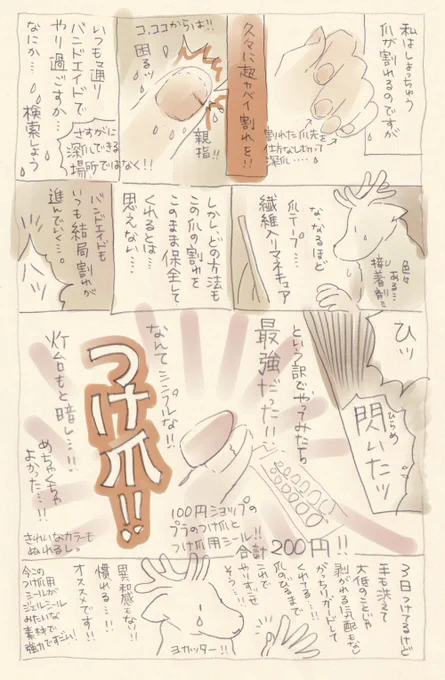 私はしょっちゅう
爪が割れるのですが
割れた爪先を
仕方なしに切って
深爪……
久々に超ヤベイ割れを!!
コ、ココからは!!
困るッ
親指!!
いつも通り
バンドエイドで
やり過ごすか…
さすがに
深爪できる
場所ではなく!!
なにか…
検索しよう
色々
ある…
接着剤…
な、なるほど
爪テープ…
繊維入りマニキュア
しかし、どの方法も
この爪の割れを
このまま保全して
くれるとは
思えない……
バンドエイドも
いつも結局割れが
進んでいく…。
ハッ
ヒッ
閃いたッ
ひらめ
という訳でやってみたら
最強だった!!
なんてシンプルな!!
つけ爪!!
灯台もと暗し…!!
めちゃくちゃ
よかった…!!
きれいなカラーも
ぬれるし。
100円ショップの
プラのつけ爪と
つけ爪用シール!!
合計200円!!
3日つけてるけど
手も洗えて
大抵のことじゃ
剥がれる気配もなし
がっちりガードして
くれる…!!
爪のびるまで
これで
やりすごせ
そう…!!
ヨカッター!!
異和感もない!!
慣れる…!!
オススメです!!
今この
つけ爪用
シールが
ジェルシール
みたいな
素材で
強力ですごい!